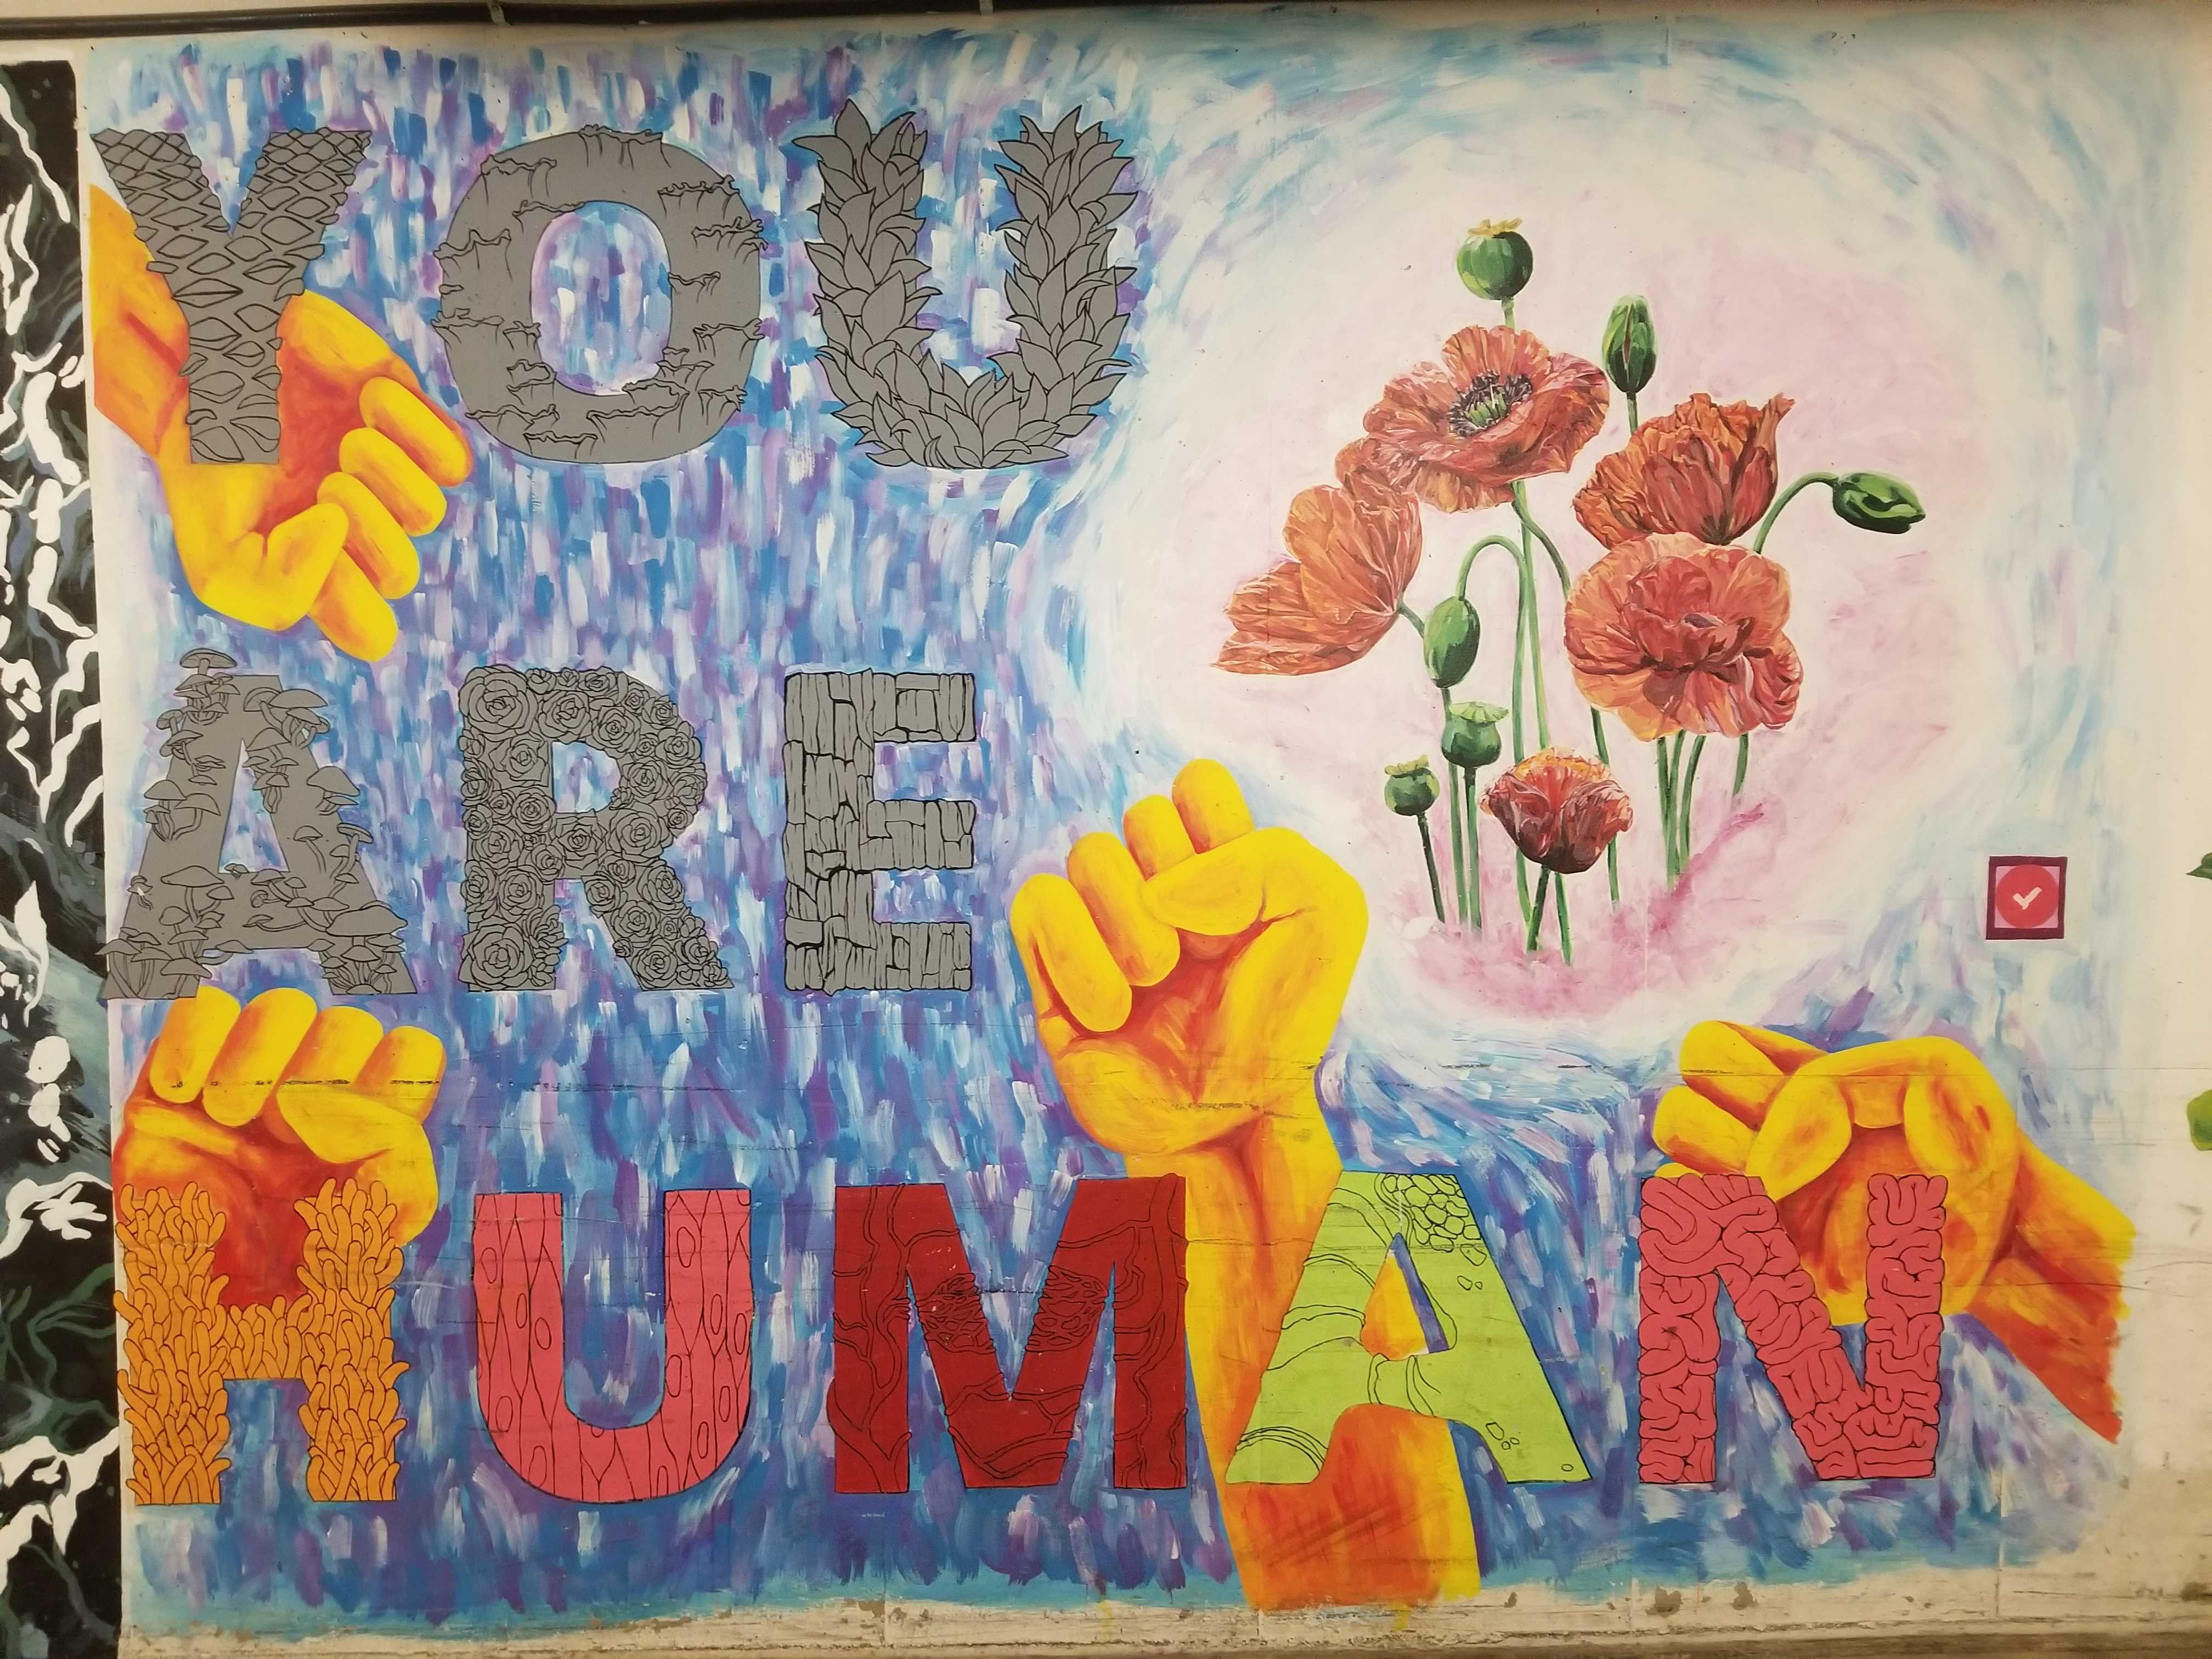 YOU
ARE
HUMAN